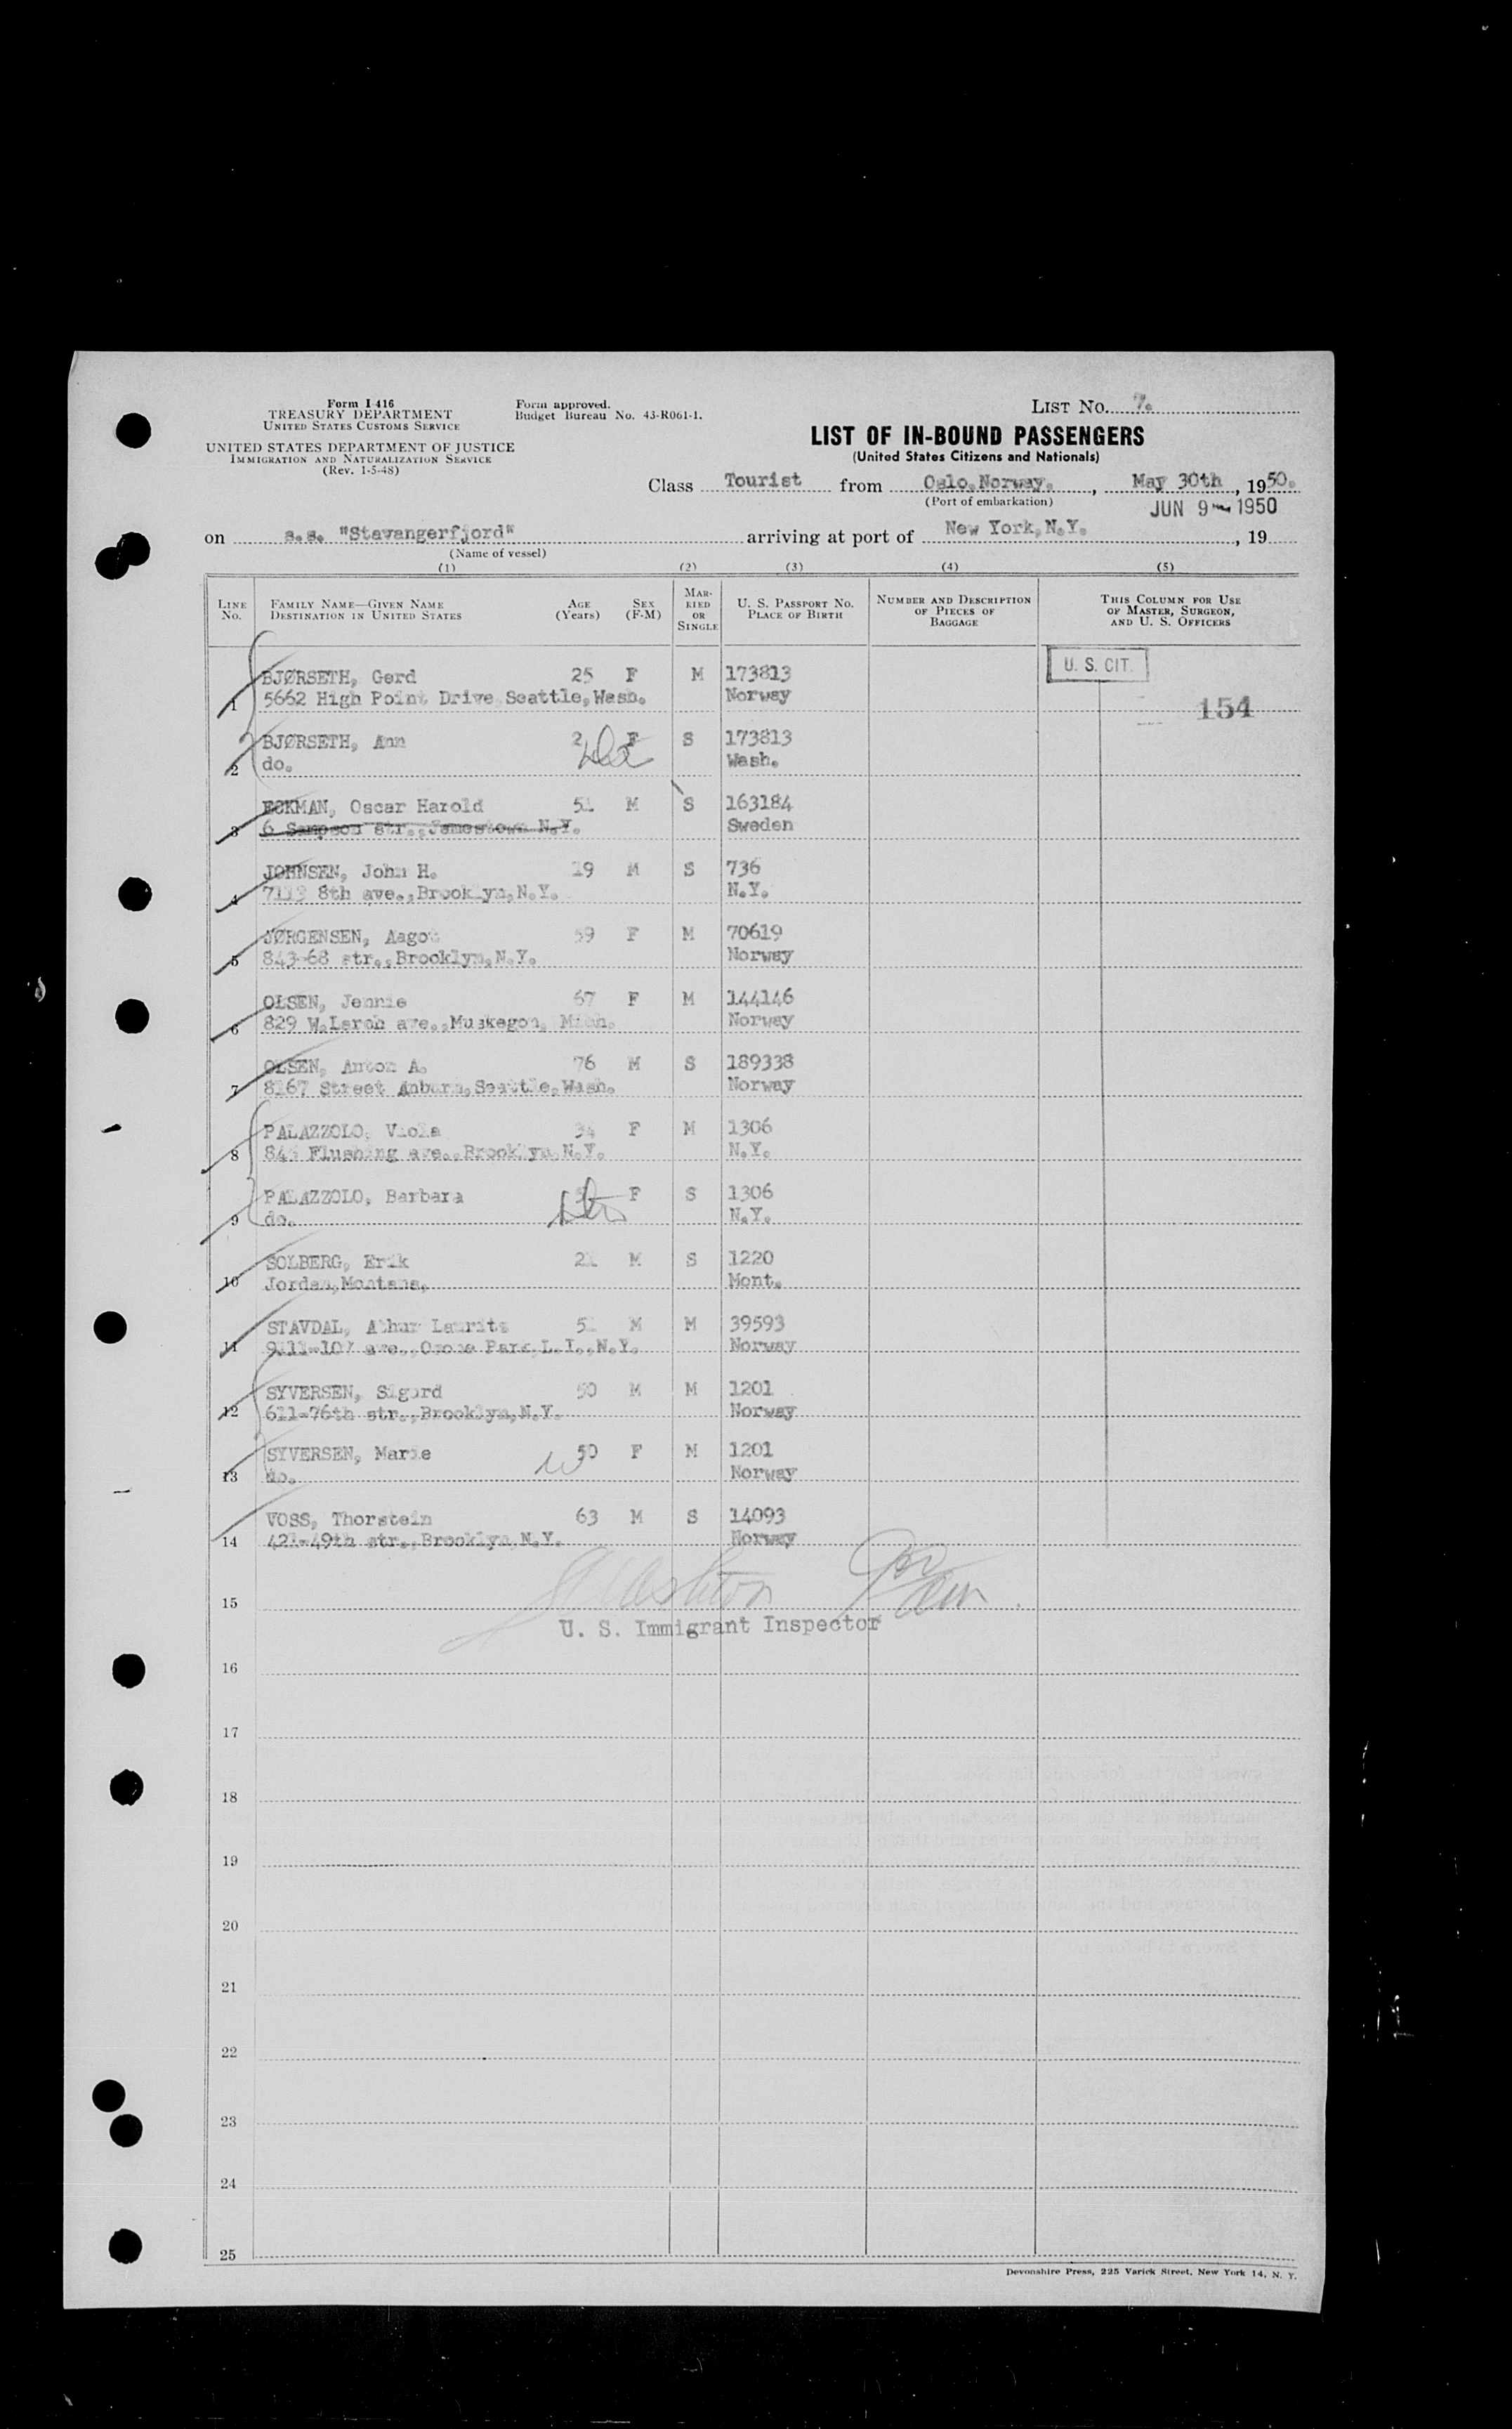 Form I-416
TREASURY DEPARTMENT
UNITED STATES CUSTOMS SERVICE
UNITED STATES DEPARTMENT OF JUSTICE
IMMIGRATION AND NATURALIZATION SERVICE
(Rev. 1-5-48)
Form approved.
Budget Bureau No. 43-R061-1.
LIST NO. 7.
LIST OF IN-BOUND PASSENGERS
(United States Citizens and Nationals)
Class Tourist from Oslo, Norway. , May 30th , 1950.
(Port of embarkation)
JUN 9 - 1950
on s.s. "Stavangerfjord" arriving at port of New York, N.Y. , 19
(Name of vessel)
(1) (2) (3) (4) (5)
LINE No. FAMILY NAME—GIVEN NAME DESTINATION IN UNITED STATES AGE (Years) SEX (F-M) MARRIED OR SINGLE U. S. PASSPORT NO. PLACE OF BIRTH NUMBER AND DESCRIPTION OF PIECES OF BAGGAGE THIS COLUMN FOR USE OF MASTER, SURGEON, AND U. S. OFFICERS
BJØRSETH, Gerd 25 F M 173813 U. S. CIT.
1 5662 High Point Drive Seattle, Wash. Norway 154
BJØRSETH, Ann 2 F S 173813
2 do. Wash.
ECKMAN, Oscar Harold 51 M S 163184
3 6 Sampson str., Jamestown N.Y. Sweden
JOHNSEN, John H. 19 M S 736
4 7113 8th ave., Brooklyn, N.Y. N.Y.
JØRGENSEN, Aagot 59 F M 70619
5 843-68 str., Brooklyn, N.Y. Norway
OLSEN, Jennie 67 F M 144146
6 829 W.Larch ave., Muskegon, Mich. Norway
OLSEN, Anton A. 76 M S 189338
7 8167 Street Anburn, Seattle, Wash. Norway
PALAZZOLO, Viola 34 F M 1306
8 Flushing ave., Brooklyn N.Y. N.Y.
PALAZZOLO, Barbara F S 1306
9 do. N.Y.
SOLBERG, Erik 21 M S 1220
10 Jordan, Montana, Mont.
STAVDAL, Athur Laurits 51 M M 39593
11 9111-107 ave., Ozone Park, L.I., N.Y. Norway
SYVERSEN, Sigurd 50 M M 1201
12 611-76th str., Brooklyn, N.Y. Norway
SYVERSEN, Marie 50 F M 1201
13 do. Norway
VOSS, Thorstein 63 M S 14093
14 421-49th str., Brooklyn, N.Y. Norway
15
U. S. Immigrant Inspector
16
17
18
19
20
21
22
23
24
25
Devonshire Press, 225 Varick Street, New York 14, N. Y.